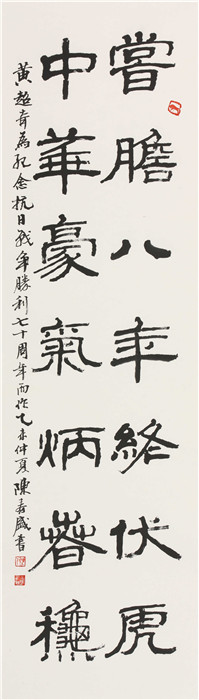 嘗膽八年終伏虎
中華豪氣炳春穐
黄超奇為紀念抗日戰争勝利七十周年而作乙未仲夏陳壽盛書